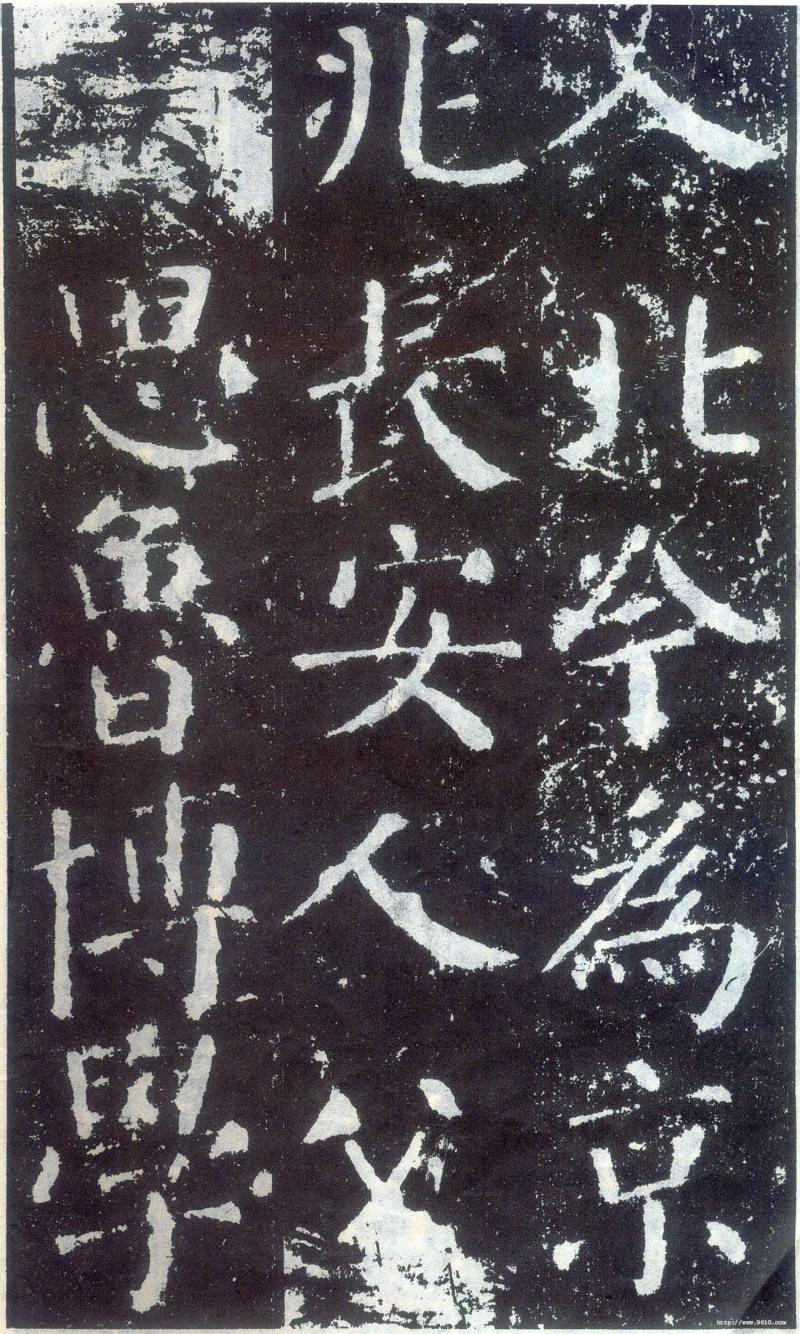 入北今為京
兆長安人父
思魯博學
http://www.9610.com